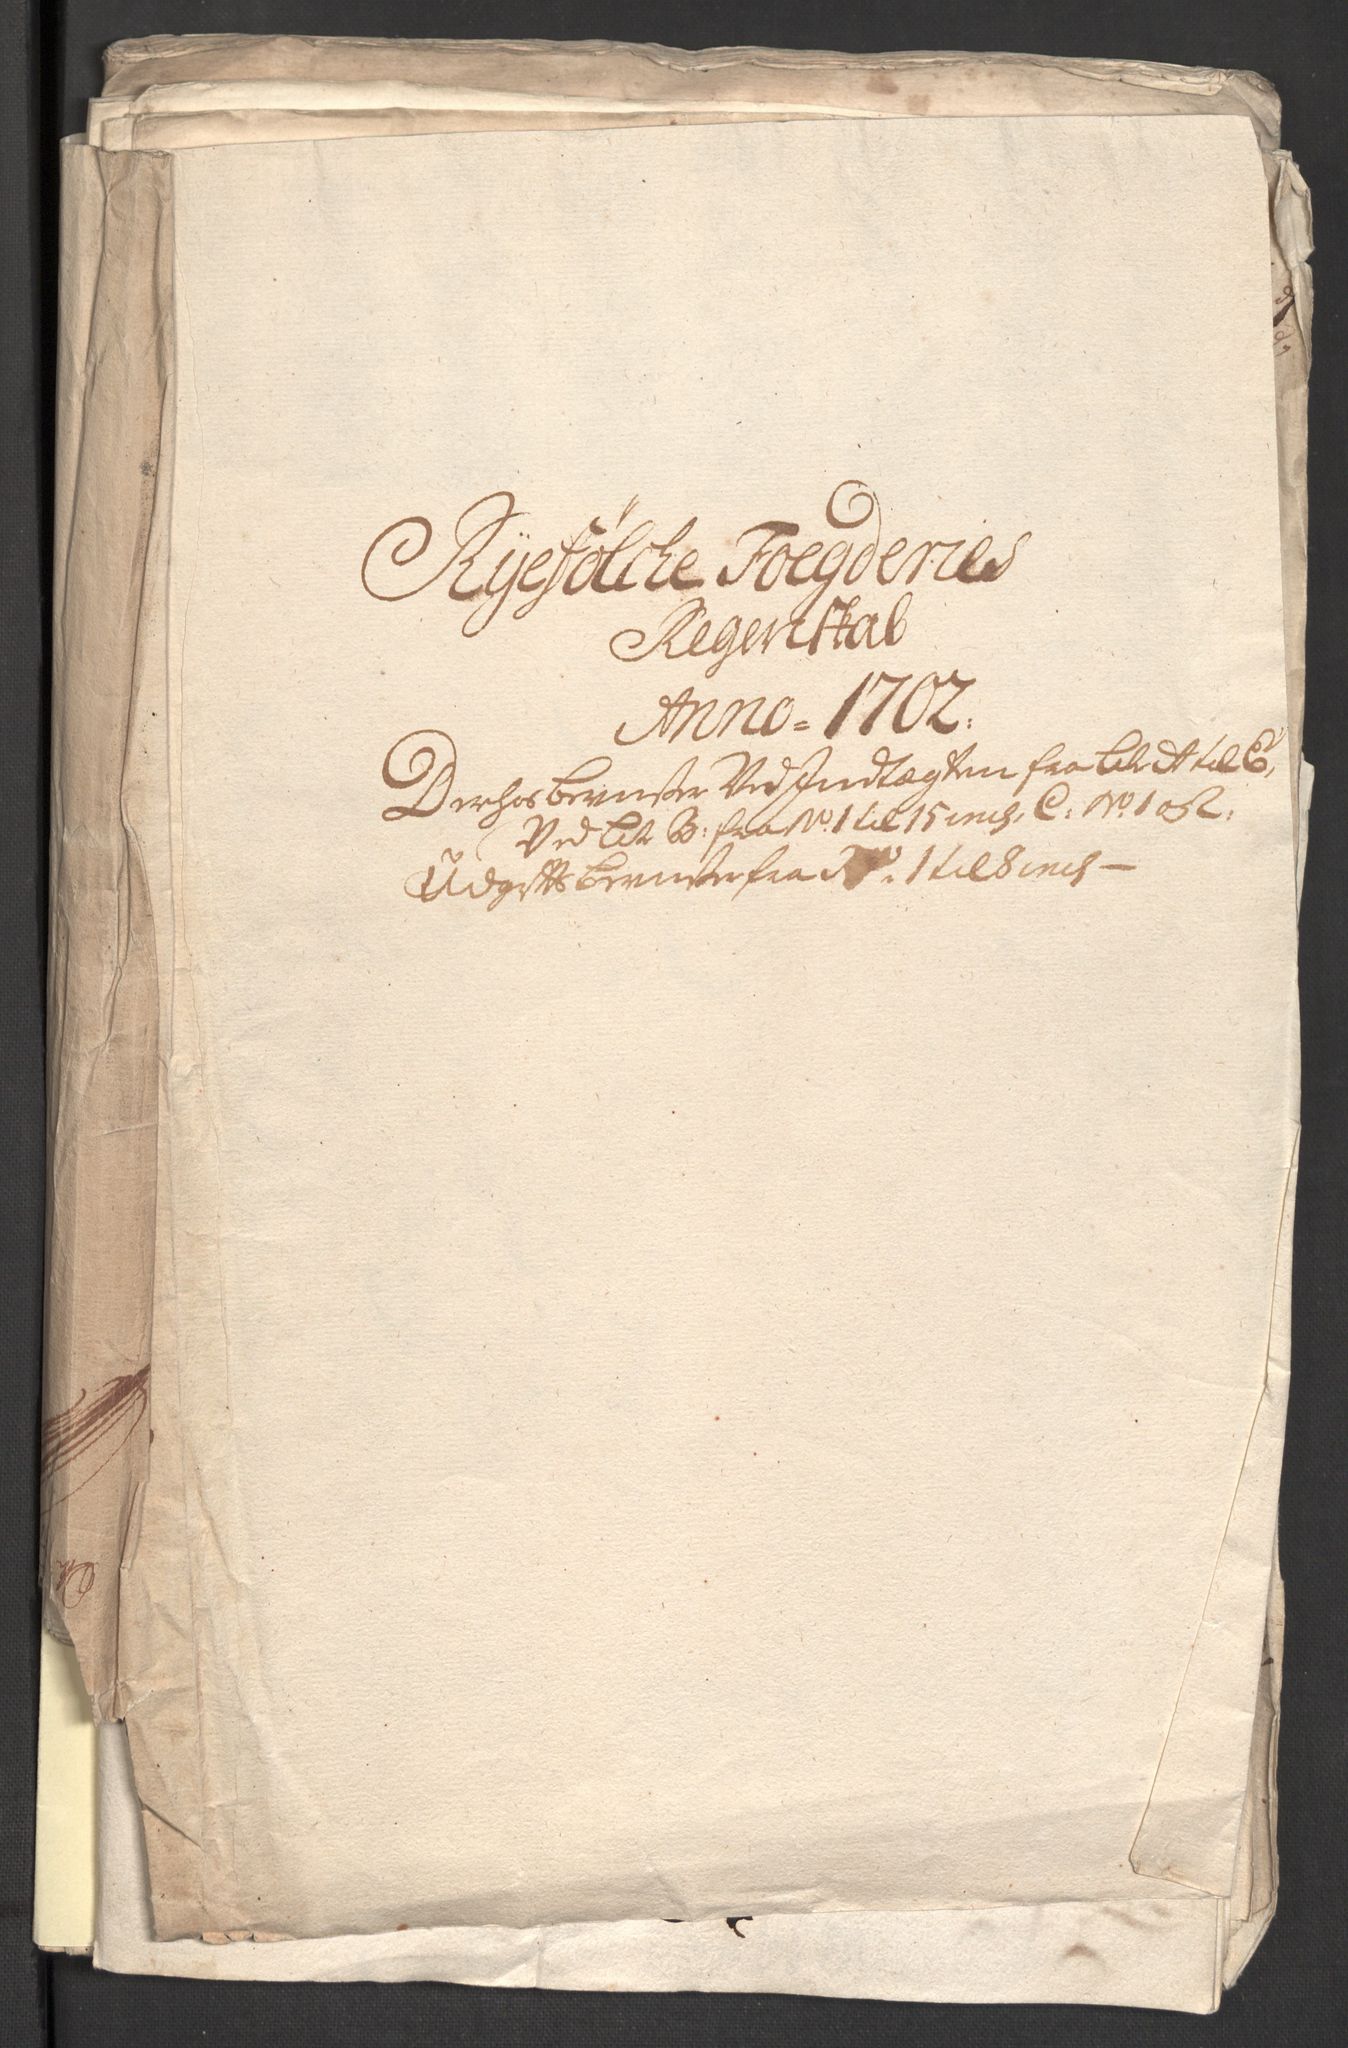 Ryefölche Foegderies
Regenskab
Anno = 1702.
Derhos bevuster Ved Indtægten fra litr A til E,
Ved litr B: fra No. 1 til 15 incl. C: No. 1 og 2.
Udgiffts bevuster fra No. 1 til 8 incl —